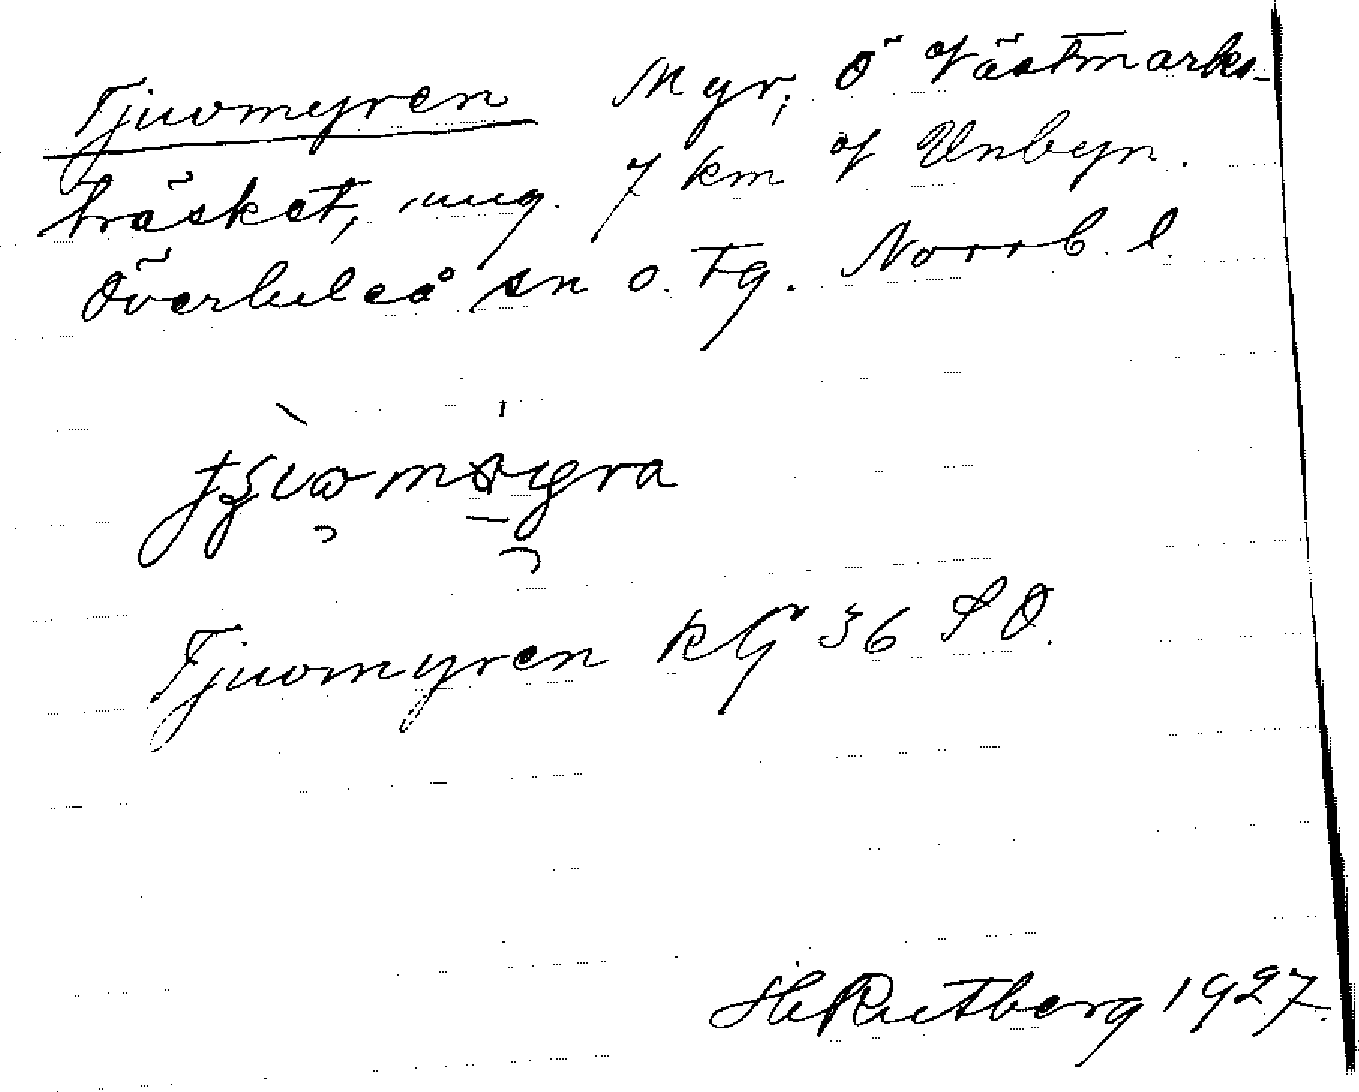 Tjuomyren Myr, Ö Västmarks-
träsket, ung. 7 km V Unbyn.
Överluleå sn o. tg. Norrb. l.
Tjuomyren KG 36 SO.
H Rutberg 1927.